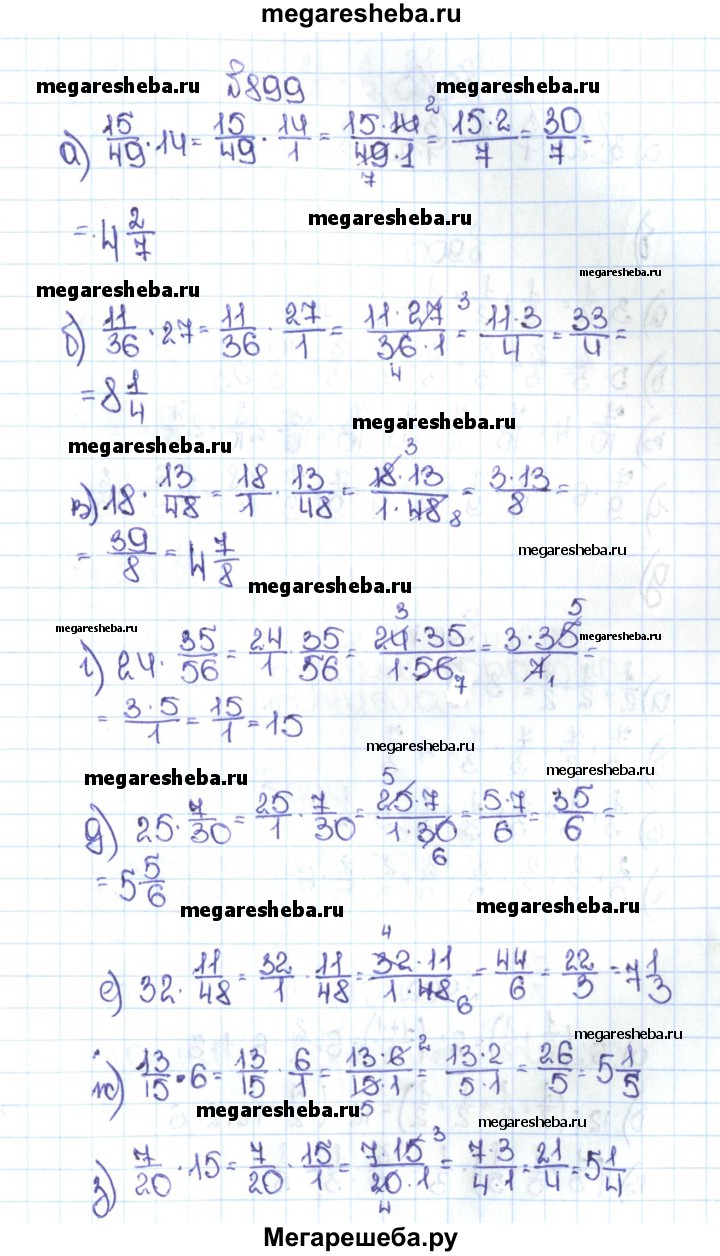 megaresheba.ru
megaresheba.ru №899 megaresheba.ru
а) 15/49 · 14 = 15/49 · 14/1 = 15·14 2/49·1 7 = 15·2/7 = 30/7 =
= 4 2/7 megaresheba.ru
megaresheba.ru
megaresheba.ru
б) 11/36 · 27 = 11/36 · 27/1 = 11·27 3/36·1 4 = 11·3/4 = 33/4 =
= 8 1/4
megaresheba.ru
megaresheba.ru
в) 18 · 13/48 = 18/1 · 13/48 = 3 18·13/1·48 8 = 3·13/8 =
= 39/8 = 4 7/8 megaresheba.ru
megaresheba.ru
megaresheba.ru megaresheba.ru
г) 24 · 35/56 = 24/1 · 35/56 = 3 24·35/1·56 7 = 3·35 5/7 1 =
= 3·5/1 = 15/1 = 15
megaresheba.ru
megaresheba.ru megaresheba.ru
д) 25 · 7/30 = 25/1 · 7/30 = 5 25·7/1·30 6 = 5·7/6 = 35/6 =
= 5 5/6
megaresheba.ru megaresheba.ru
е) 32 · 11/48 = 32/1 · 11/48 = 4 32·11/1·48 6 = 44/6 = 22/3 = 7 1/3
megaresheba.ru
ж) 13/15 · 6 = 13/15 · 6/1 = 13·6 2/15·1 5 = 13·2/5·1 = 26/5 = 5 1/5
megaresheba.ru
megaresheba.ru
з) 7/20 · 15 = 7/20 · 15/1 = 7·15 3/20·1 4 = 7·3/4·1 = 21/4 = 5 1/4
Мегарешеба.ру